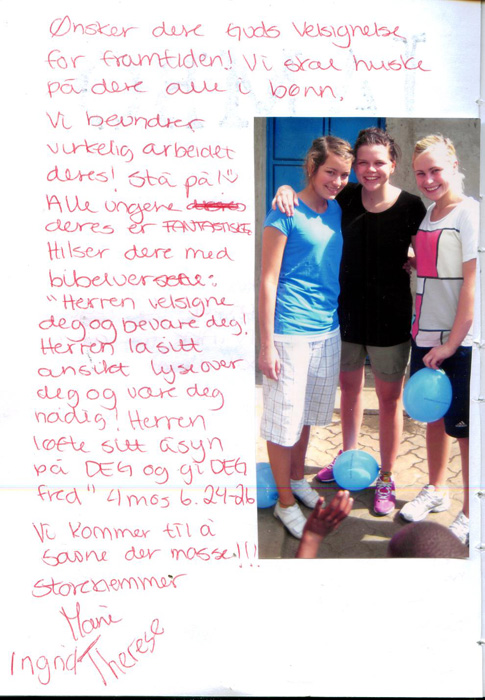 Ønsker dere Guds Velsignelse
for framtiden! Vi skal huske
på dere alle i bønn.
Vi beundrer
virkelig arbeidet
deres! Stå på!
Alle ungene
deres er FANTASTISKE
Hilser dere med
bibelversene:
"Herren velsigne
deg og bevare deg!
Herren la sitt
ansikt lyse over
deg og være deg
nådig! Herren
løfte sitt åsyn
på DEG og gi DEG
fred" 4 mos 6. 24-26
Vi kommer til å
savne der masse!!!
Storeklemmer
Marie
Ingrid Therese